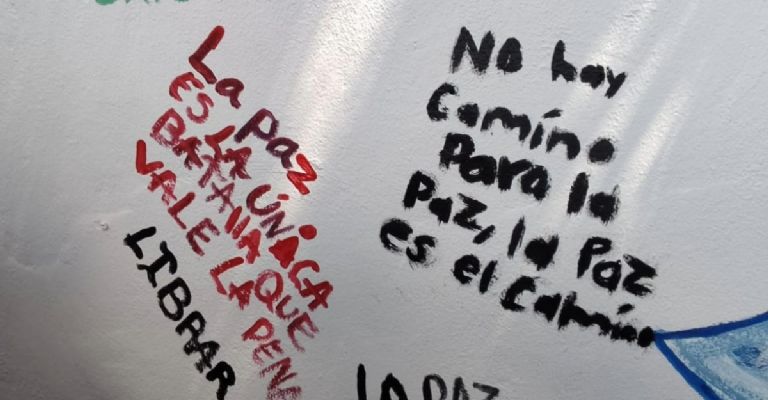 La paz
ES LA ÚNACA
BATALLA QUE
VALE LA PENA
LIBRAR
No hay
Camino
Para la
Paz, la Paz
es el Camino
LA PAZ